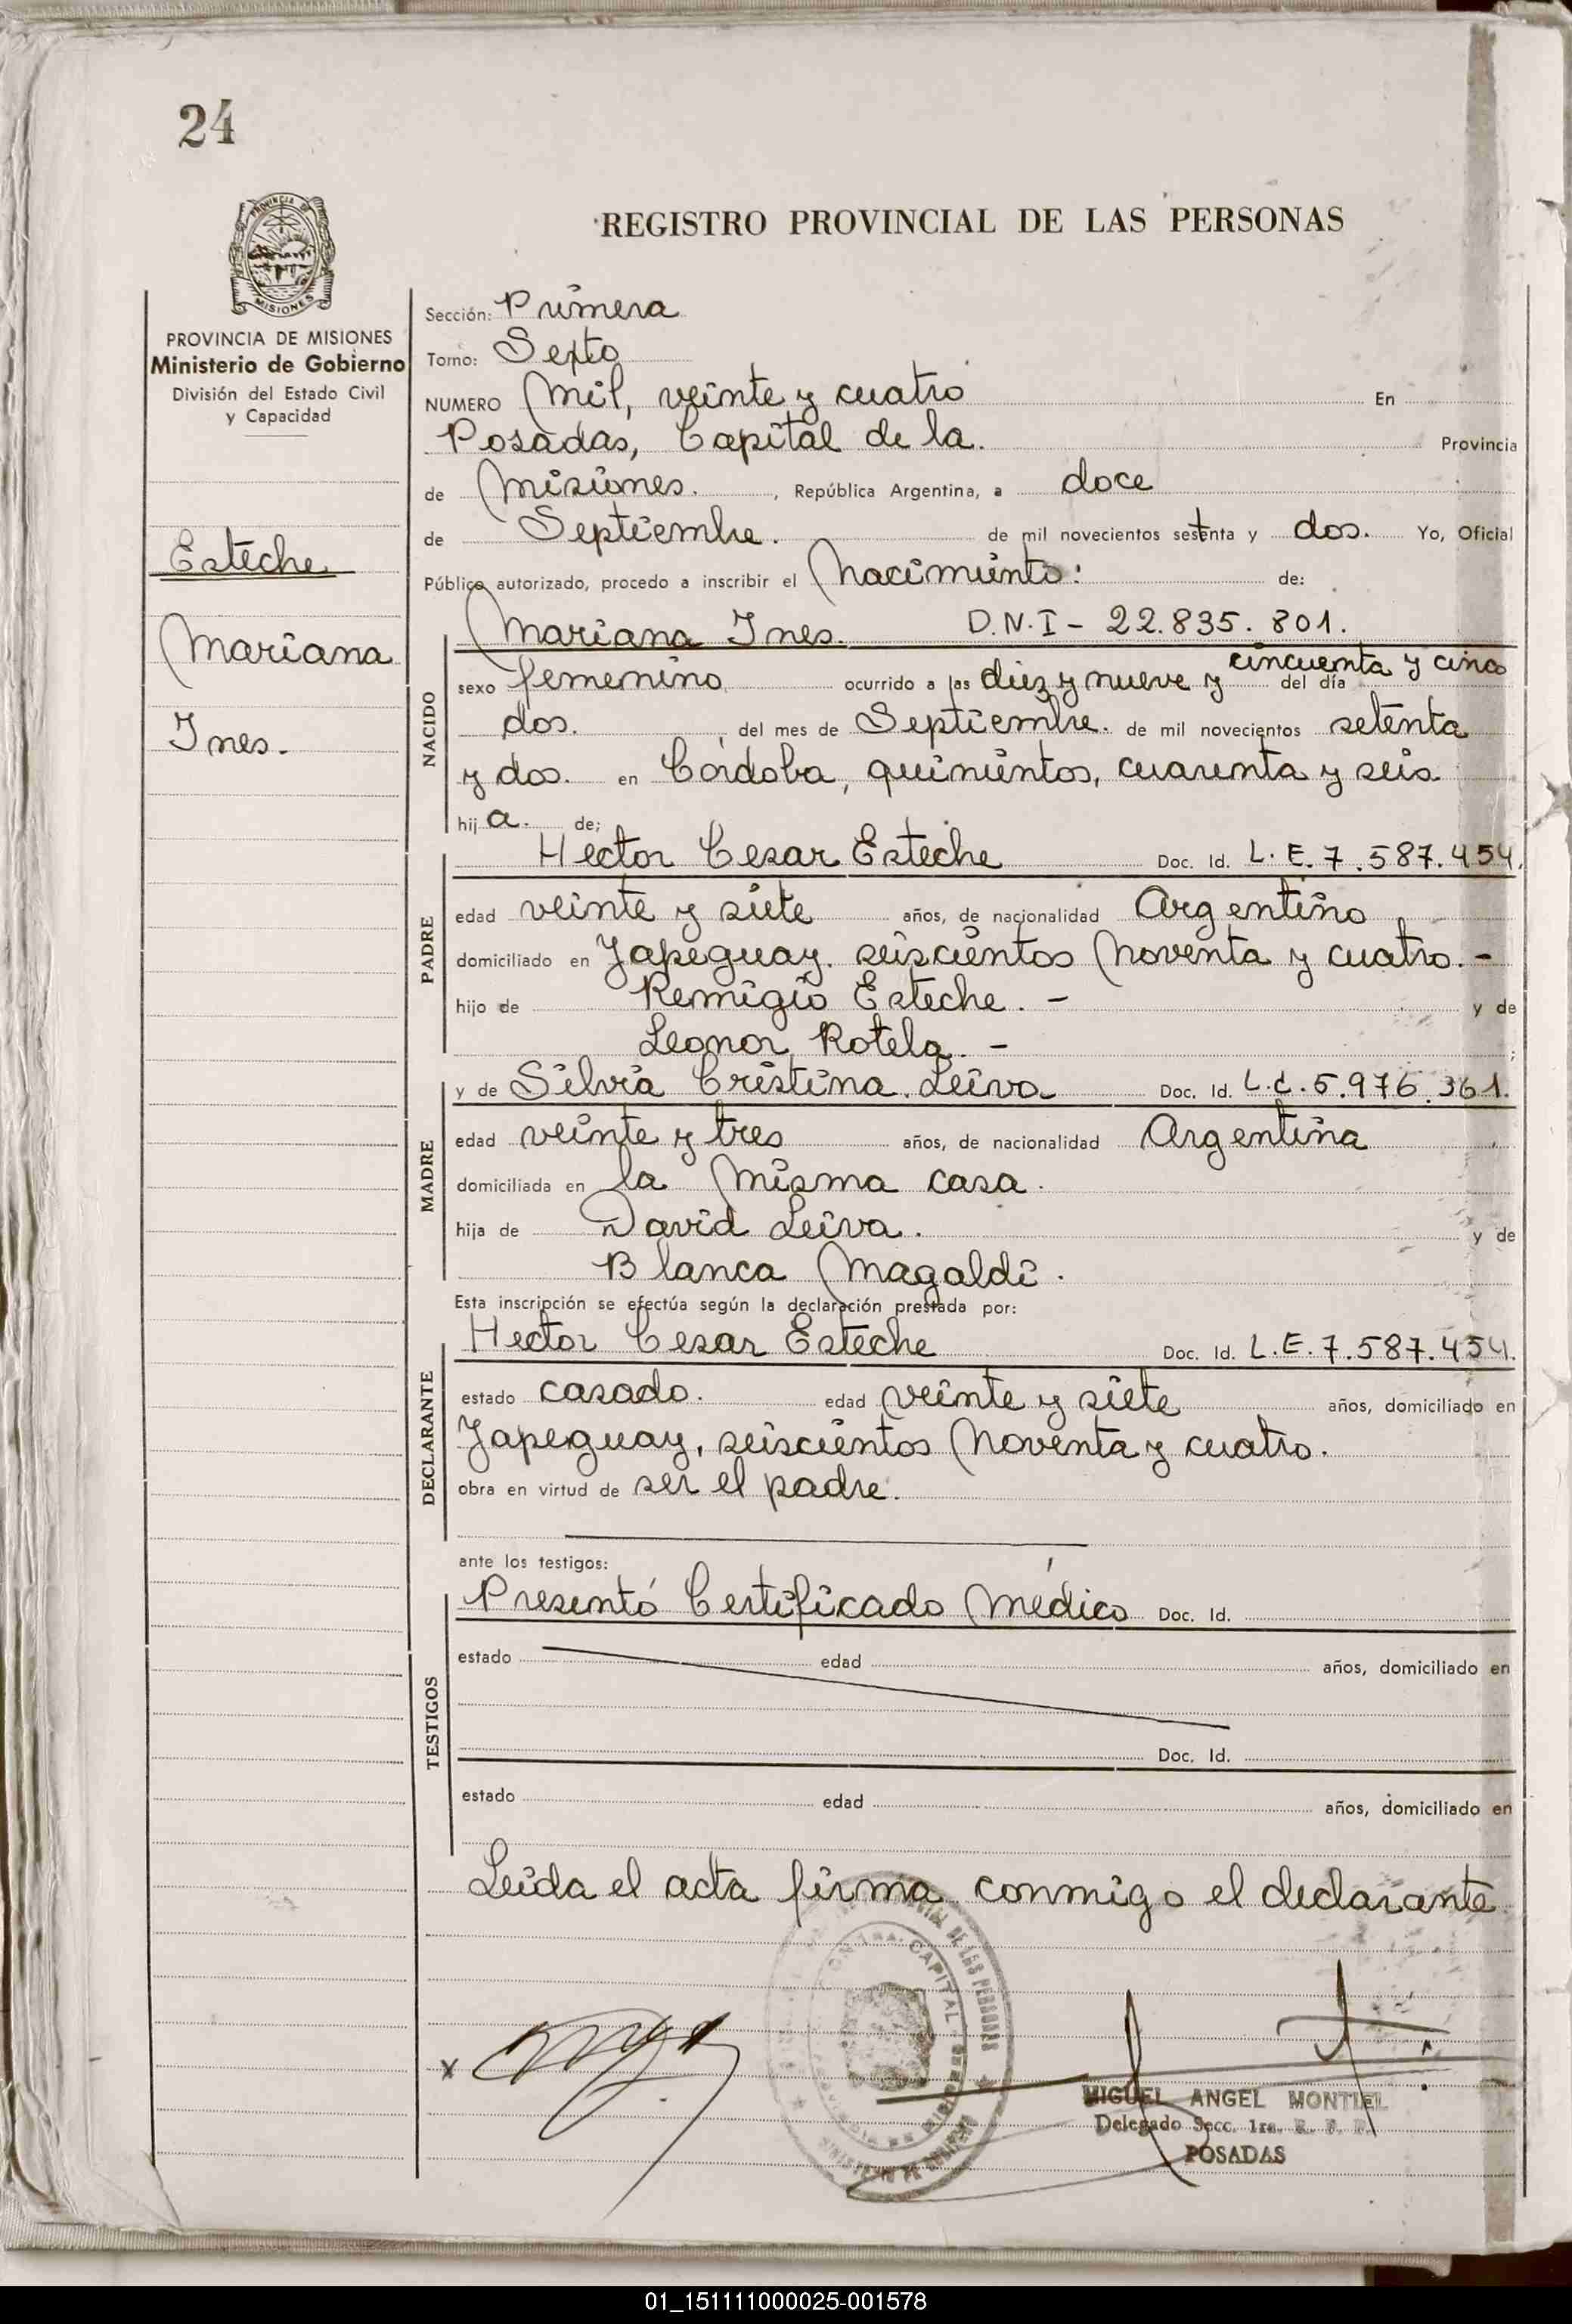 24
REGISTRO PROVINCIAL DE LAS PERSONAS
PROVINCIA DE
MISIONES
PROVINCIA DE MISIONES
Ministerio de Gobierno
División del Estado Civil
y Capacidad
Esteche
Mariana
Ines.-
Sección: Primera
Tomo: Sexto
NUMERO Mil, veinte y cuatro En
Posadas, Capital de la. Provincia
de Misiones. , República Argentina, a doce
de Septiembre. de mil novecientos setenta y dos. Yo, Oficial
Público autorizado, procedo a inscribir el Nacimiento: de:
Mariana Ines. D.N.I - 22.835.801.
NACIDO
sexo femenino ocurrido a las diez y nueve y cincuenta y cinco del día
dos. , del mes de Septiembre. de mil novecientos setenta
y dos. en Córdoba, quinientos, cuarenta y seis
hij a. de;
Hector Cesar Esteche Doc. Id. L.E.7.587.454.
PADRE
edad veinte y siete años, de nacionalidad Argentino
domiciliado en Japeguay. seiscientos Noventa y cuatro.-
hijo de Remigio Esteche.- y de
Leonor Rotela.- ;
y de Silvia Cristina Leiva Doc. Id. L.C.5.976.361.
MADRE
edad veinte y tres años, de nacionalidad Argentina
domiciliada en la Misma casa.
hija de David Leiva. y de
Blanca Magaldi.
Esta inscripción se efectúa según la declaración prestada por:
Hector Cesar Esteche Doc. Id. L.E.7.587.454.
DECLARANTE
estado casado. edad veinte y siete años, domiciliado en
Japeguay, seiscientos Noventa y cuatro.
obra en virtud de ser el padre.
ante los testigos:
Presentó Certificado Médico Doc. Id.
TESTIGOS
estado edad años, domiciliado en
Doc. Id.
estado edad años, domiciliado en
Leida el acta firma conmigo el declarante
X
CAPITAL
DE LAS PERSONAS
MIGUEL ANGEL MONTIEL
Delegado Secc. 1ra. R. P. P.
POSADAS
01_151111000025-001578